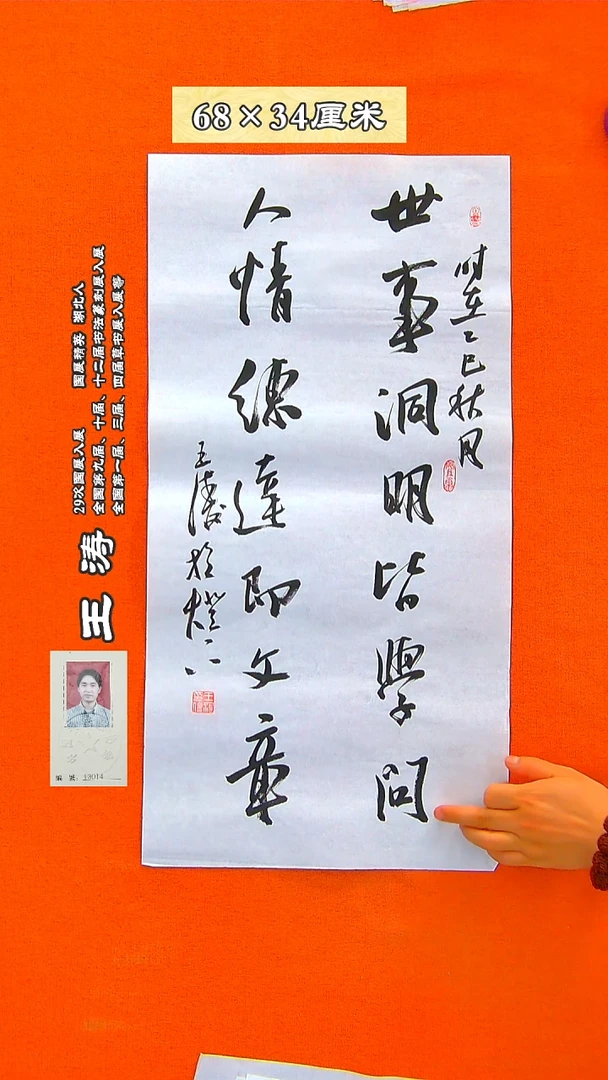 68×34厘米
时在乙巳秋月
世事洞明皆學問
人情練達即文章
王涛於燈下
王涛
29次国展入展 国展精英 湖北人
全国第九届、十届、十二届书法篆刻展入展
全国第一届、三届、四届草书展入展等
编号: